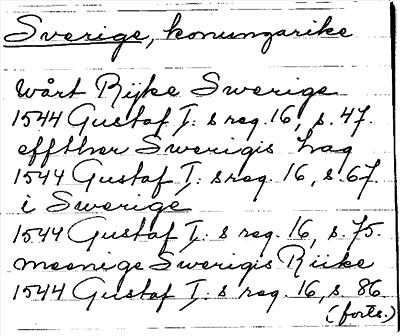 Sverige, konungarike
wårt Rijke Swerige
1544 Gustaf I: s reg. 16, s. 47.
effther Swerigis Lag
1544 Gustaf I: s reg. 16, s. 67.
i Swerige
1544 Gustaf I: s reg. 16, s. 75.
meenige Swerigis Riike
1544 Gustaf I: s reg. 16, s. 86
(forts.)